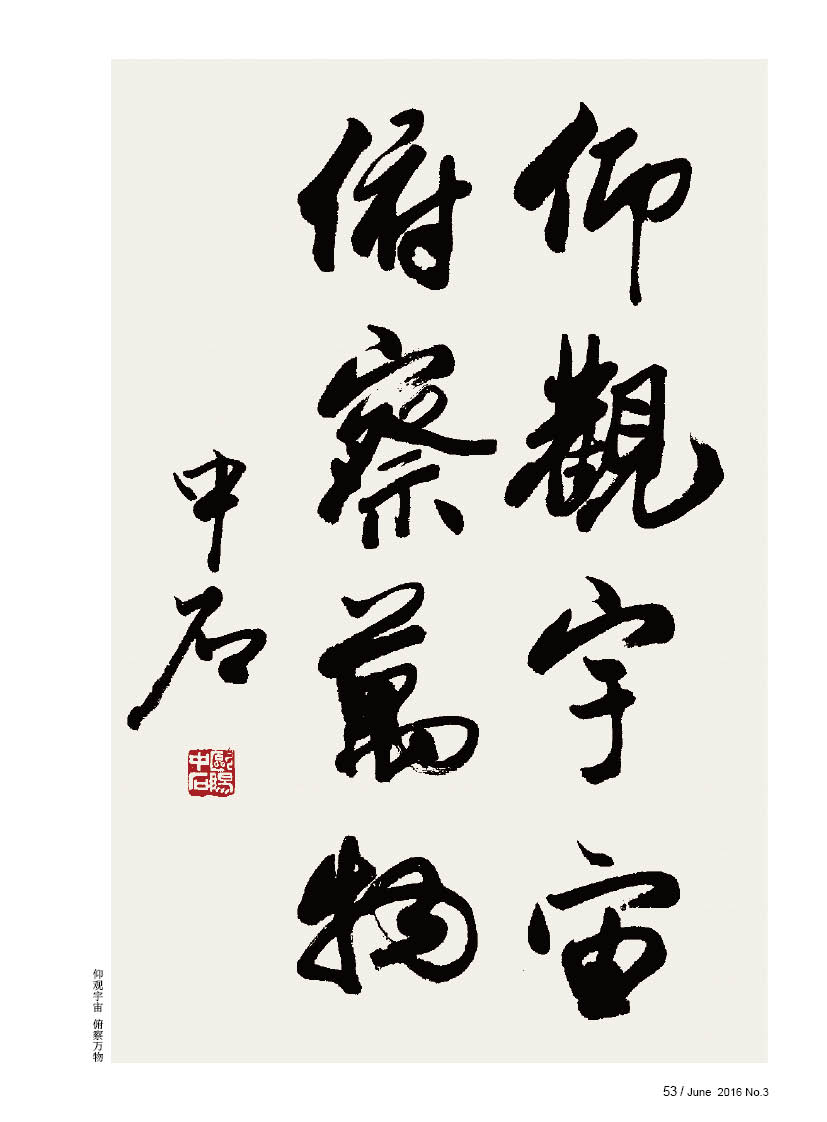 仰觀宇宙
俯察萬物
中石
歐陽
中石
仰观宇宙 俯察万物
53 / June 2016 No.3